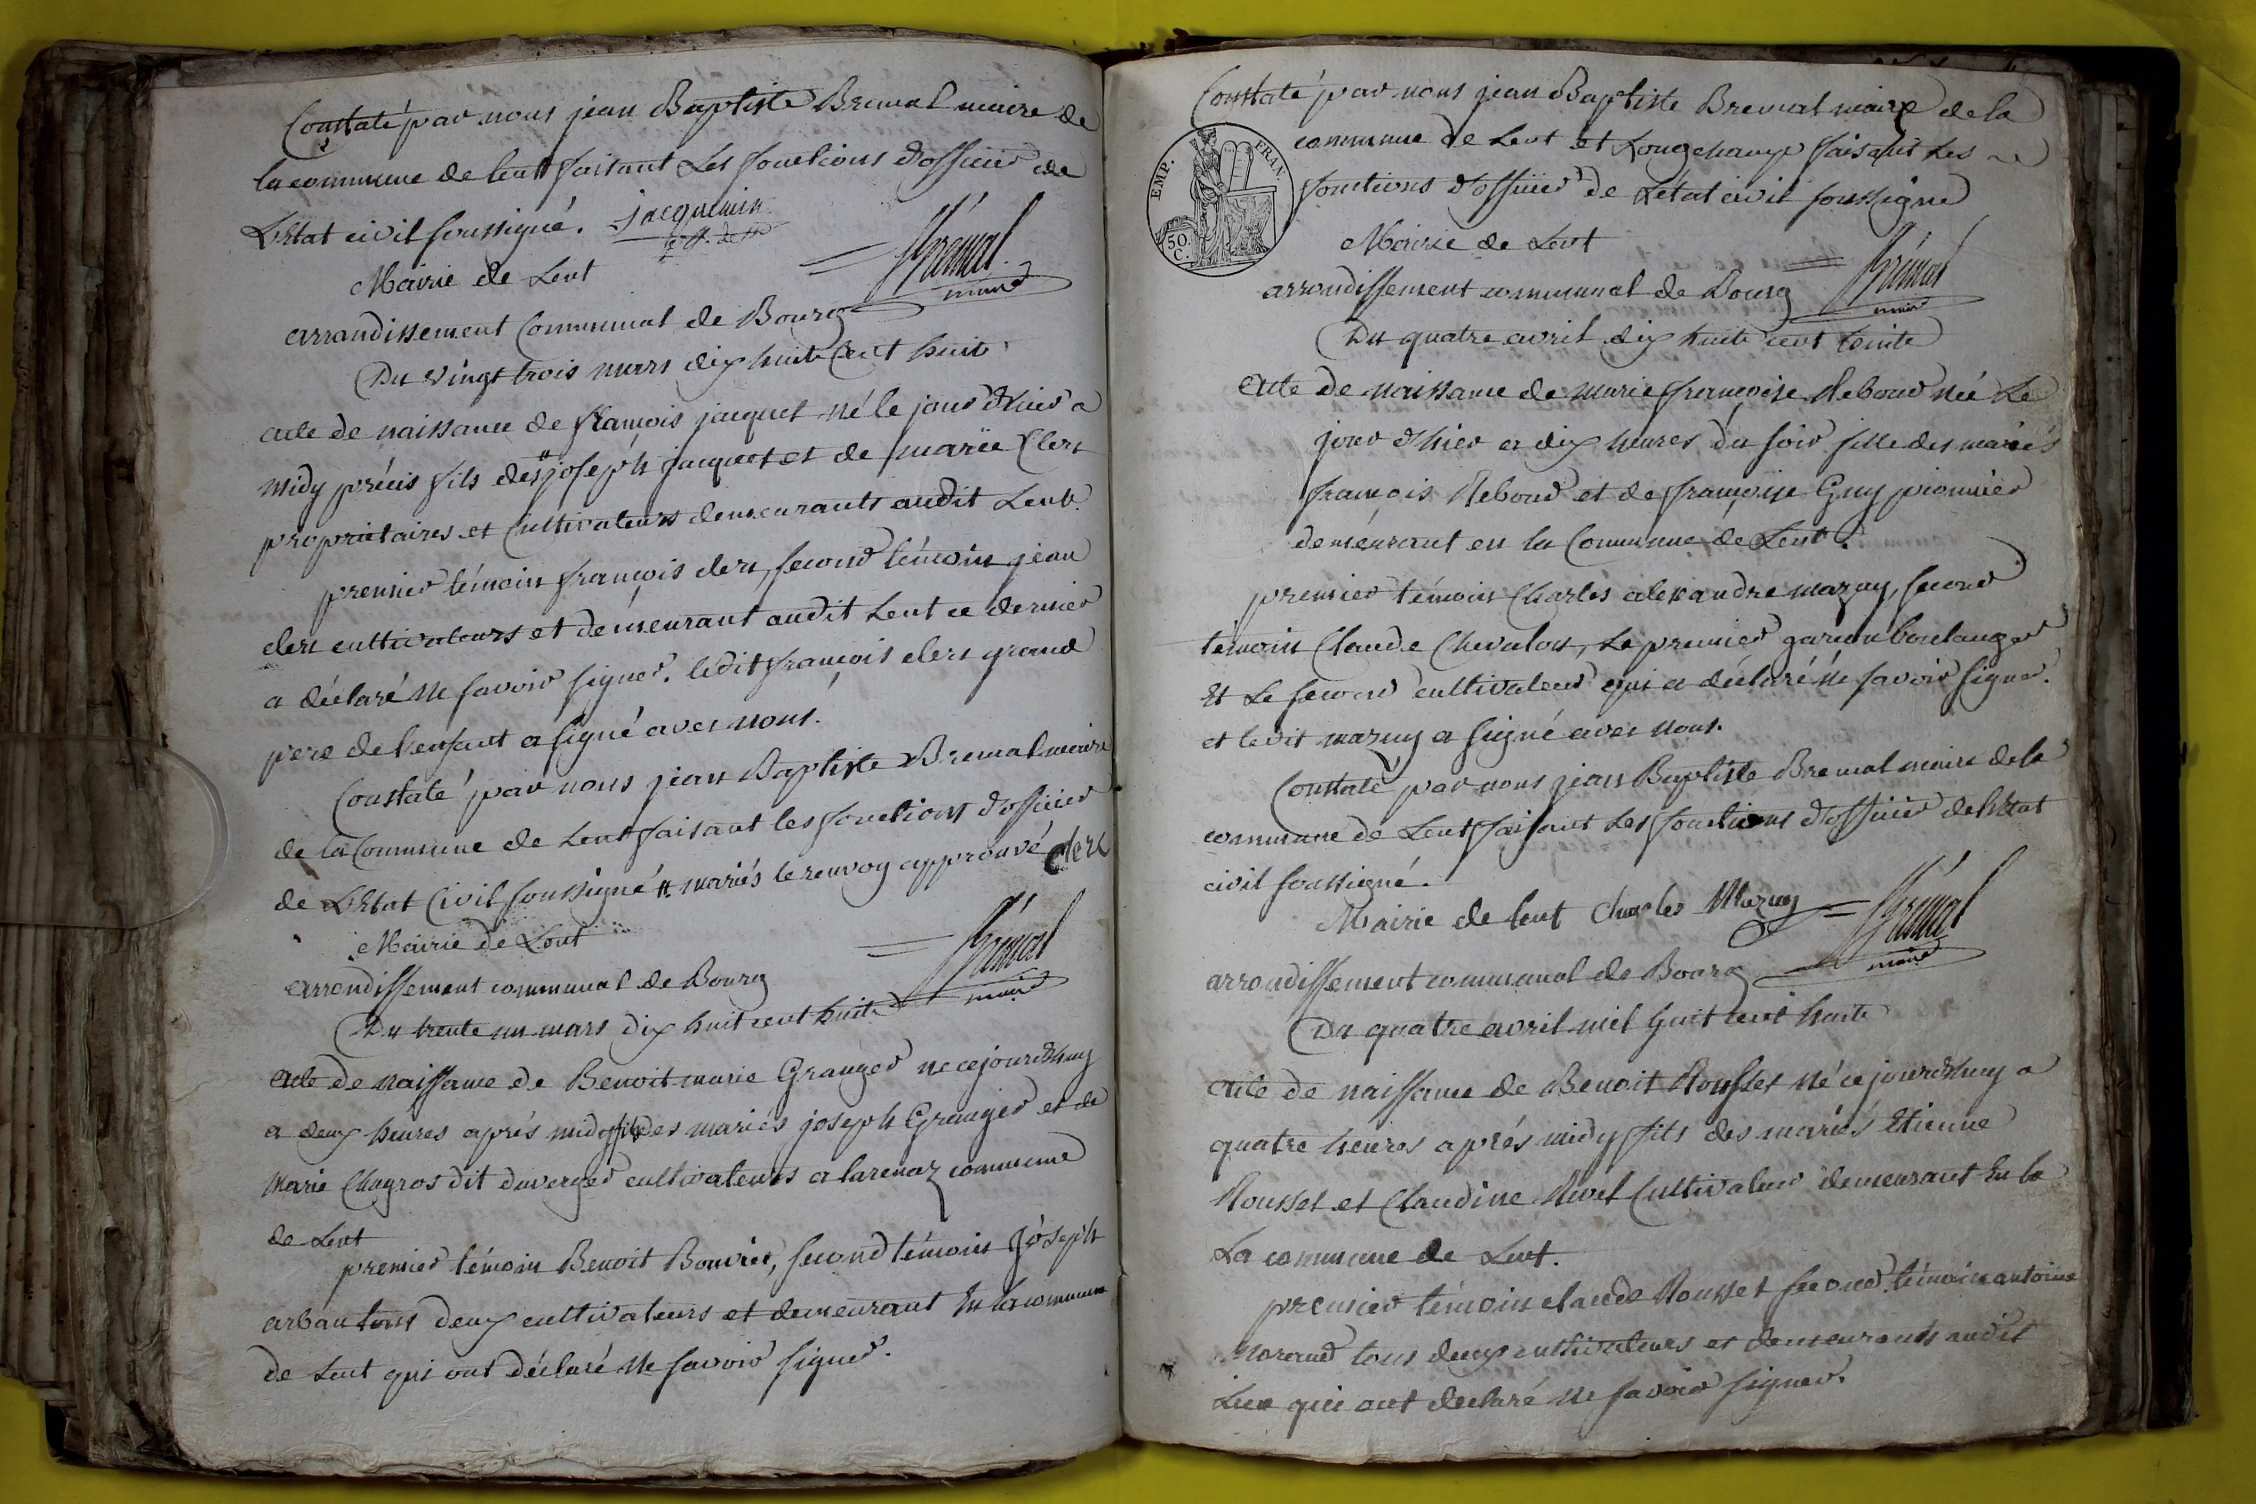 Constaté par nous jean Baptiste Bremal maire de
la commune de lent faisant Les fonctions d'officier de
L'Etat civil soussigné. jacquemin
Brémal
maire
Mairie de Lent
arrondissement Communal de Bourg
Du vingt trois mars dix huit Cent huit
acte de naissance de françois jacquet né le jour d'hier a
midy précis fils des # joseph jacquet et de marie Clerc
propriétaires et Cultivateurs demeurants audit Lent.
premier témoin françois clerc, second témoin jean
clerc cultivateurs et demeurant audit Lent ce dernier
a déclaré ne savoir signer. ledit françois clerc grand
pere de l'enfant a signé avec nous.
Constaté par nous jean Baptiste Bremal maire
de la Commune de Lent faisant les fonctions d'officier
de L'Etat Civil soussigné # mariés le renvoy approuvé clerc
Brémal
maire
Mairie de Lent
arrondissement communal de Bourg
Du trente un mars dix huit cent huit
acte de naissance de Benoit marie Granger ne cejourd'huy
a deux heures aprés midy fils des mariés joseph Granger et de
Marie Chagros dit duverger cultivateurs a larenaz commune
de Lent
premier témoin Benoit Bouvier, second témoin Joseph
arban tous deux cultivateurs et demeurant En la commune
de Lent qui ont déclaré ne savoir signer.
Constaté par nous jean Baptiste Bremal maire de la
commune de Lent et Longchamp faisant Les
fonctions d'officier de L'état civil soussigné
EMP. FRAN.
50 C.
Mairie de Lent
Brémal
maire
arrondissement communal de Bourg
Du quatre avril dix huit cent huite
acte de naissance de marie françoise Rebour née Le
jour d'hier a dix heures du soir fille des mariés
françois Rebour et de françoise Guy pionnier
demeurant en la Commune de Lent.
premier témoin Charles alexandre mazuy, second
témoin Claude Chevalon, Le premier garçon boulanger
et Le second cultivateur qui a déclaré ne savoir signer.
et ledit mazuy a signé avec nous.
Constaté par nous jean Baptiste Bremal maire de la
commune de Lent faisant Les fonctions d'officier de l'Etat
civil soussigné.
Mairie de lent Charles Mazuy Brémal
maire
arrondissement communal de Bourg
Du quatre avril mil huit cent huite
acte de naissance de Benoit Rousset né ce jourd'huy a
quatre heures aprés midy fils des mariés Etienne
Rousset et Claudine Rivet Cultivateur demeurant En la
La commune de Lent.
premier témoin claude Rousset second témoin antoine
Morand tous deux cultivateurs et demeurants audit
Lieu qui ont declaré ne savoir signer.